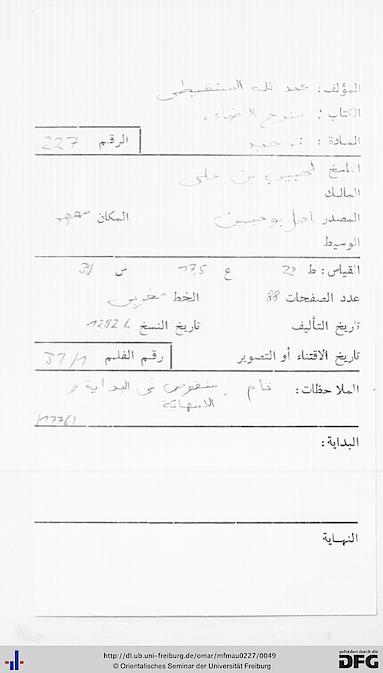 المؤلف: عبد الله الشنقيطي
الكتاب:
المادة: توحيد الرقم 227
الناسخ لحبيب بن على
المالك
المصدر اهل بوحبيبن المكان
الوسيط
القياس: ط 22 ع 17.5 س
عدد الصفحات 88 الخط مغربي
تاريخ التأليف تاريخ النسخ 1292 ه
تاريخ الاقتناء أو التصوير رقم الفلم 31/1
الملاحظات: تام منقوص فى البداية و
(1776)
البداية:
النهاية
http://dl.ub.uni-freiburg.de/omar/mfmau0227/0049
© Orientalisches Seminar der Universität Freiburg
gefördert durch die
DFG